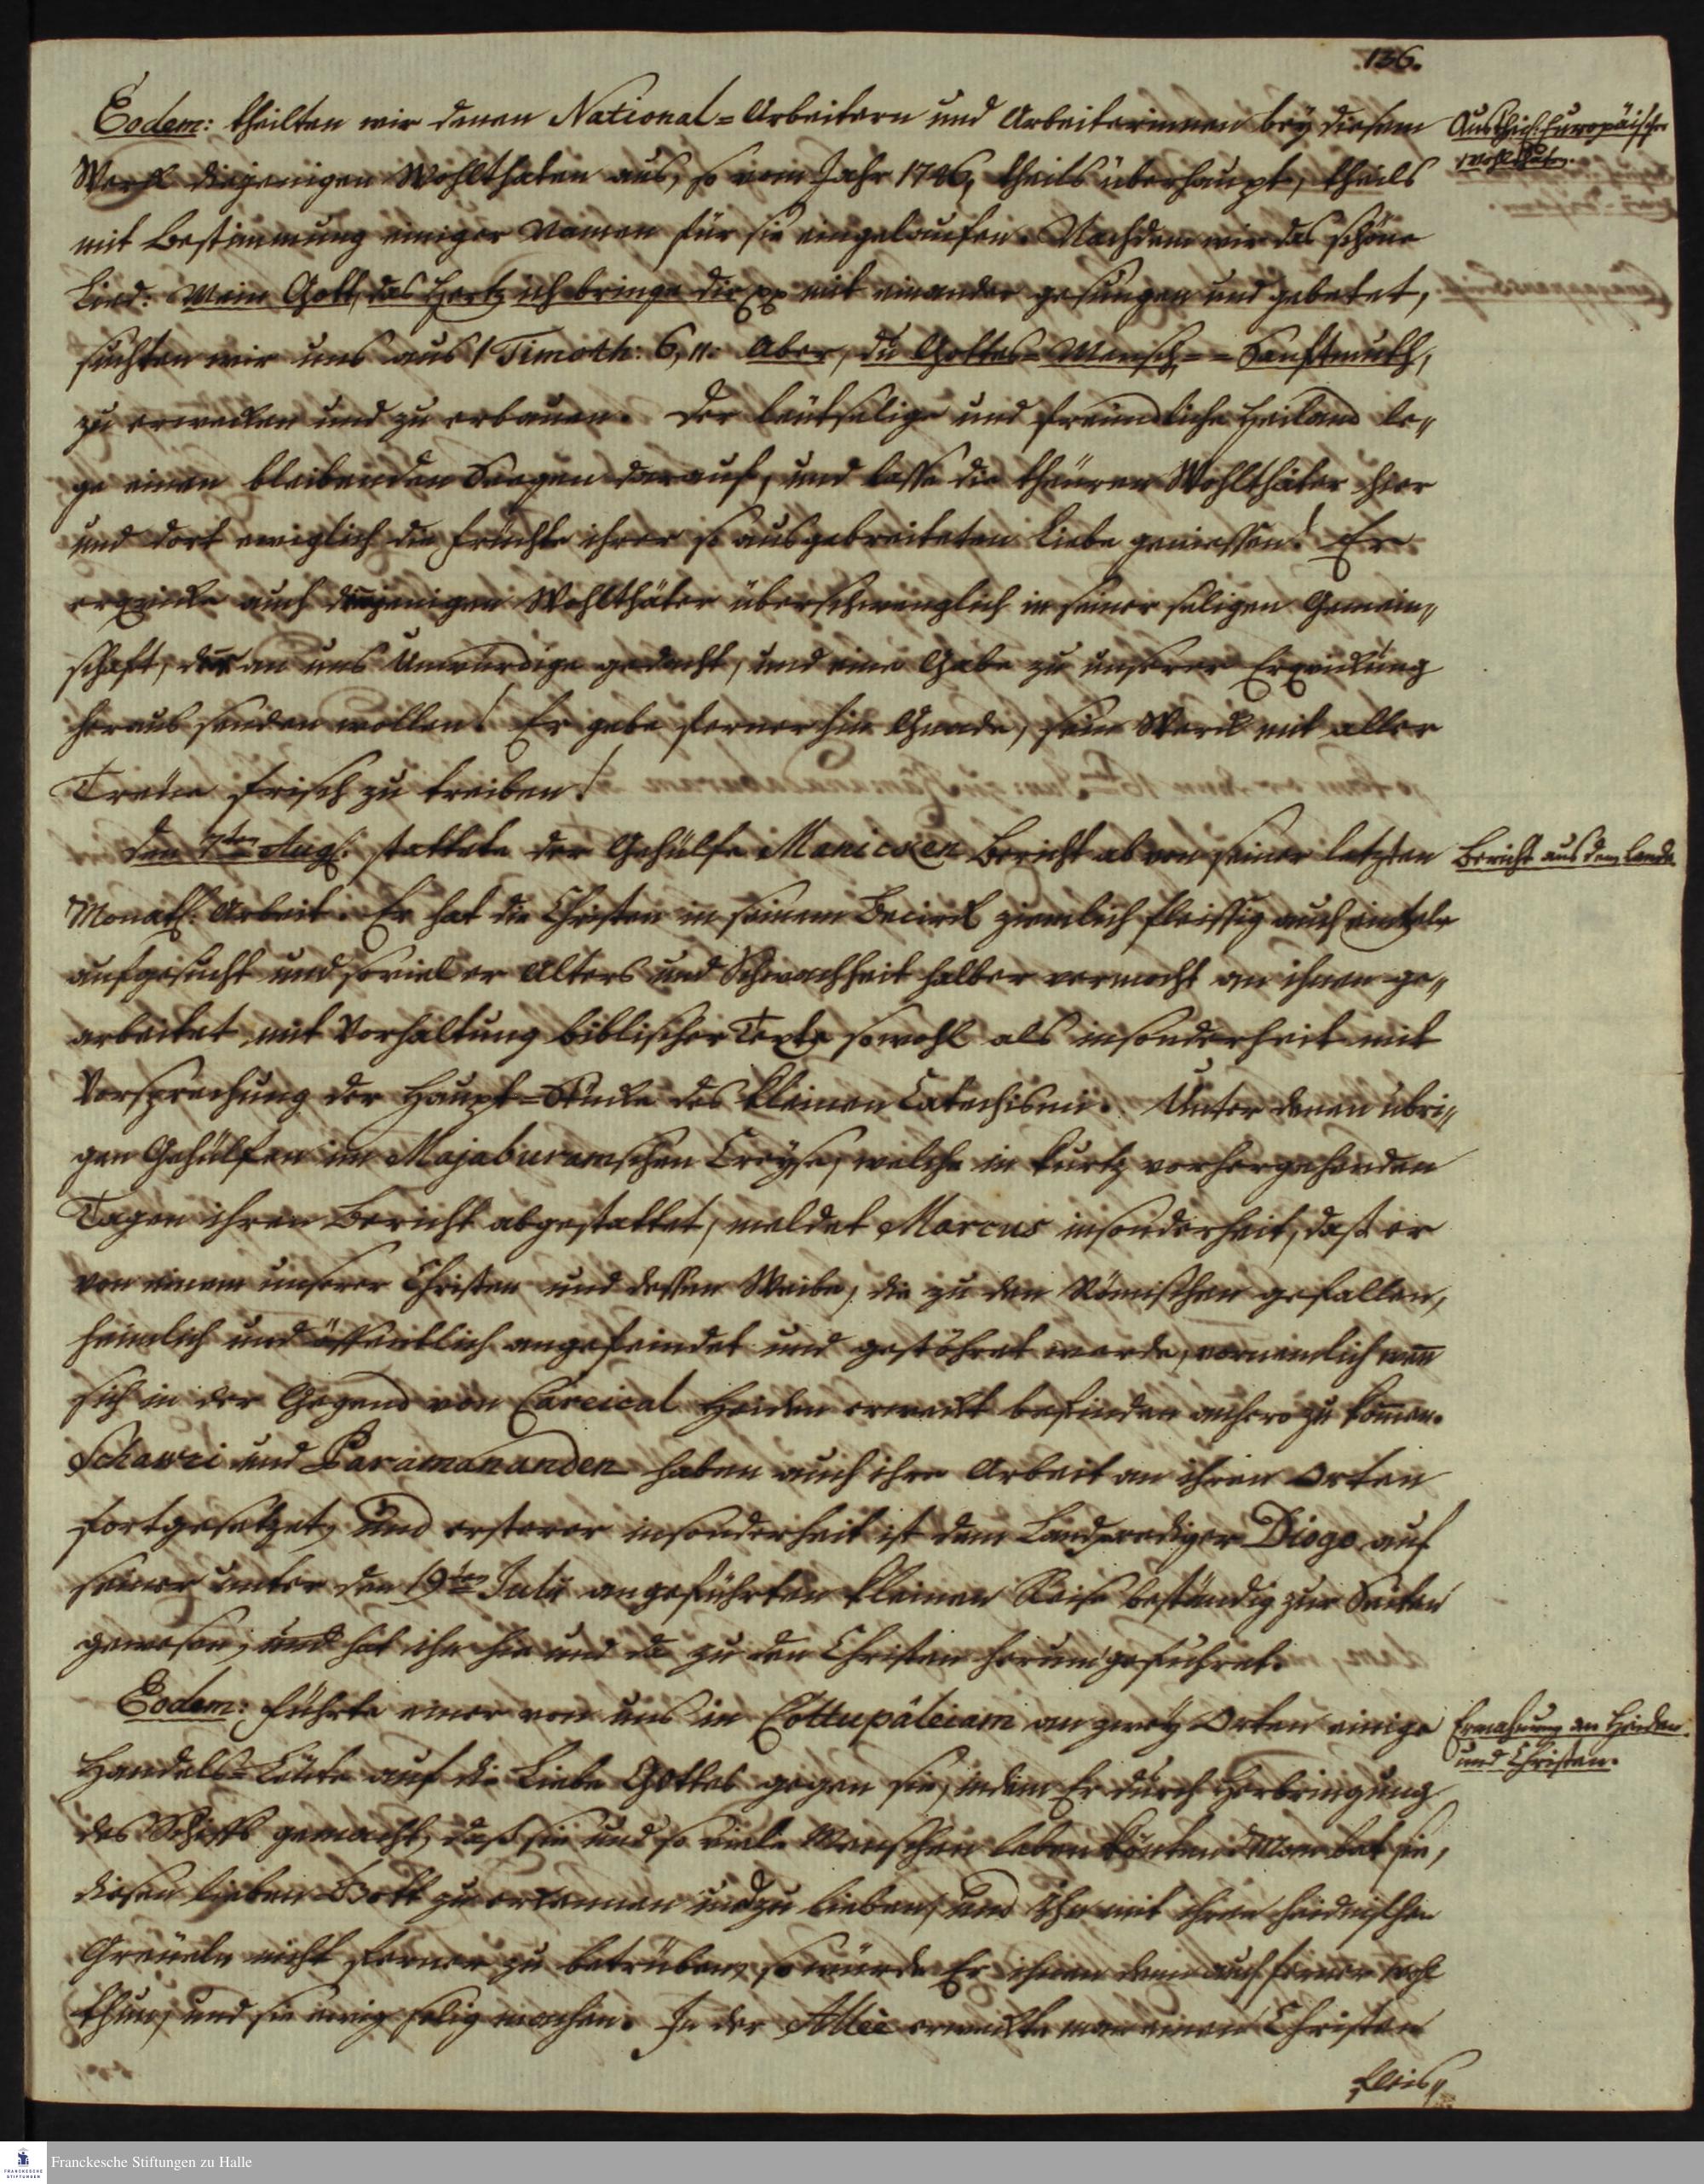 136.
Eodem: theilten wir denen National-Arbeitern und Arbeiterinnen bey diesem
Werck diejenigen Wohlthaten aus, so vom Jahr 1746, theils überhaupt, theils
mit Bestimmung einiger Namen für sie eingelaufen. Nachdem wir das schöne
Lied: Mein Gott, das Hertz ich bringe dir pp mit einander gesungen und gebetet,
suchten wir uns aus 1 Timoth: 6, 11. Aber, du Gottes-Mensch, -- Sanftmuth,
zu erwecken und zu erbauen. Der leutselige und freundliche Heiland le„
ge einen bleibenden Seegen darauf, und lasse die theuren Wohlthäter hier
und dort ewiglich die Früchte ihrer so ausgebreiteten Liebe geniessen! Er
erquicke auch denjenigen Wohlthäter überschwenglich in seiner seligen Gemein„
schaft, der an uns Unwürdige gedacht, und eine Gabe zu unserer Erquickung
heraus senden wollen! Er gebe fernerhin Gnade, sein Werck mit aller
Treue frisch zu treiben!
Den 7ten Aug: stattete der Gehülfe Manicken Bericht ab von seiner letzten
Monath: Arbeit. Er hat die Christen in seinem Becirck ziemlich fleissig auch eintzeln
aufgesucht und soviel er Alters und Schwachheit halber vermocht an ihnen ge„
arbeitet mit Vorhaltung biblischer Texte sowohl als insonderheit mit
Vorsprechung der Haupt-Stücke des kleinen Catechismi. Unter denen übri„
gen Gehülfen im Majaburamschen Creyse, welche in kurtz vorhergehenden
Tagen ihren Bericht abgestattet, meldet Marcus insonderheit, daß er
von einem unserer Christen und dessen Weibe, die zu den Römischen gefallen,
heimlich und öffentlich angefeindet und gestöhret werde, vornemlich wenn
sich in der Gegend von Careical Heiden erweckt befinden anhero zu kommen.
Schawri und Paramananden haben auch ihre Arbeit an ihren Orten
fortgesetzet, und ersterer insonderheit ist dem Landprediger Diogo auf
seiner unter den 19ten Julii angeführten kleinen Reise beständig zur Seiten
gewesen, und hat ihn hie und da zu den Christen herum geführet.
Eodem: führte einer von uns in Cottupâleiam an zwey Orten einige
Handels-Leute auf die Liebe Gottes gegen sie, indem Er durch Herbringung
des Schiffs gemacht, daß sie und so viele Menschen leben könten. Man bat sie,
diesen lieben Gott zu erkennen und zu lieben, und Ihn mit ihren heidnischen
Greueln nicht ferner zu betrüben, so würde Er ihnen denn auch ferner wohl
thun, und sie ewig selig machen. In der Allée erweckte man einen Christen
fleis„
Austheil: Europäischer
Wohlthaten.
Bericht aus dem Lande.
Ermahnung an Heiden
und Christen.
Franckesche Stiftungen zu Halle